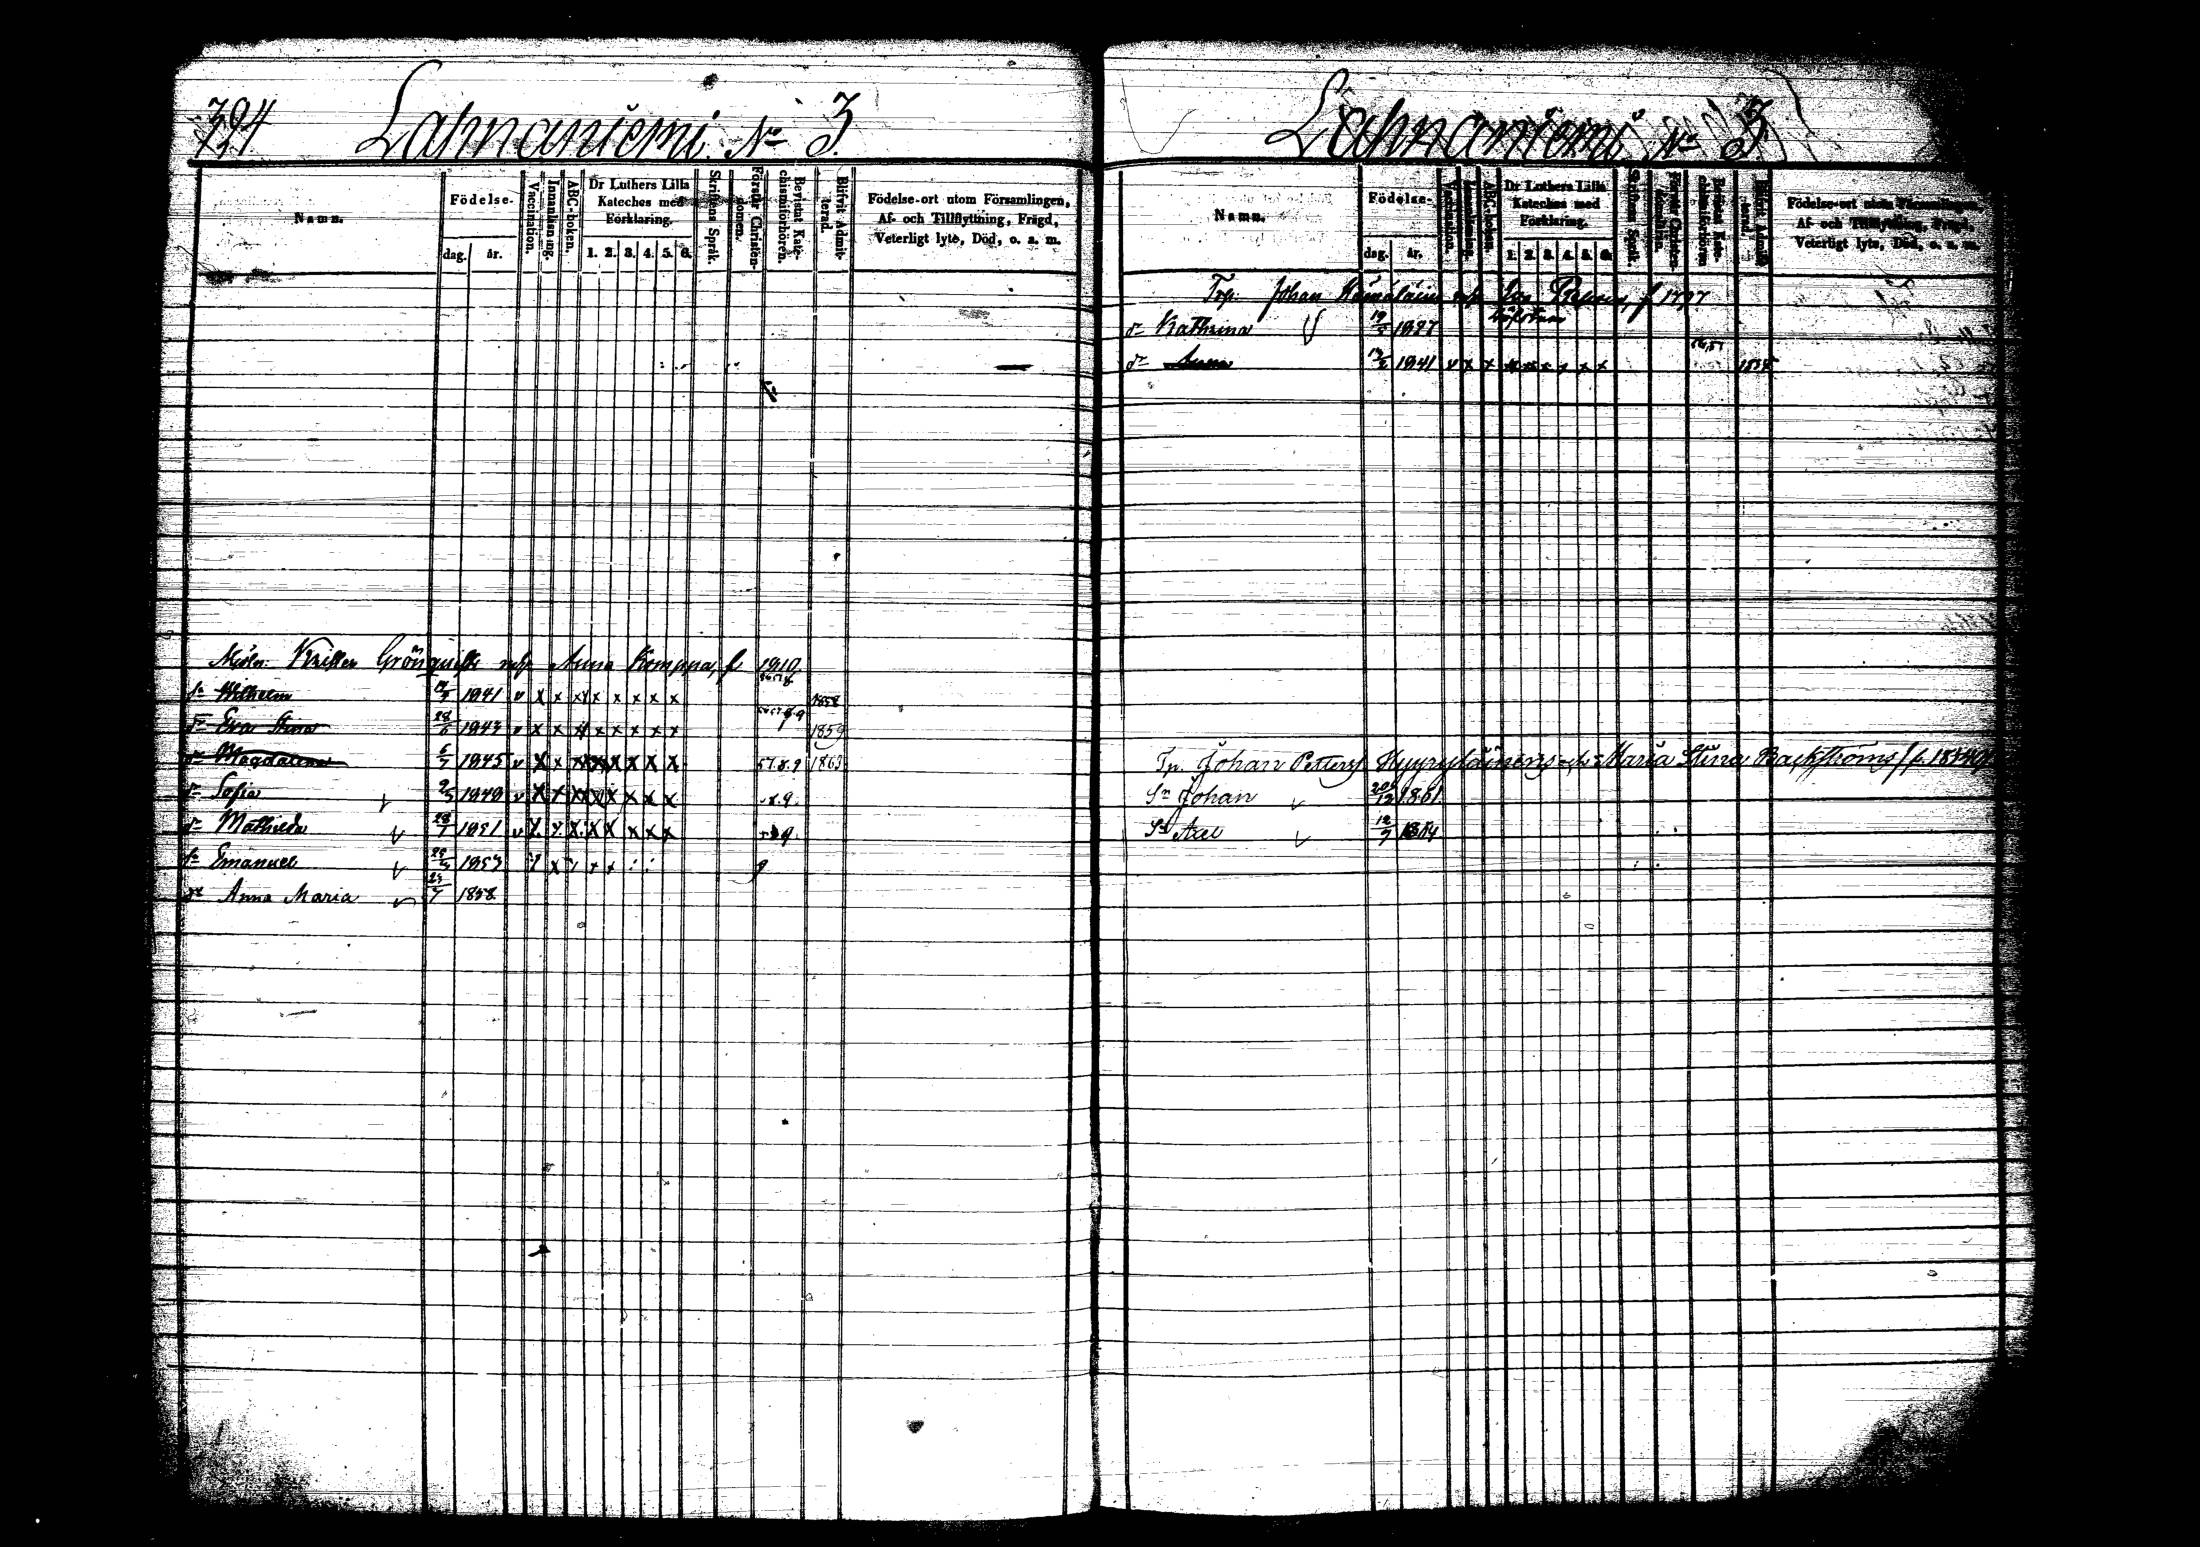 394 Lahnaniemi No 3
Namn. Födelse- dag. år. Vaccination. Innanläsning. ABC-boken. Dr Luthers Lilla Kateches med Förklaring. 1. 2. 3. 4. 5. 6. Skriftens Språk. Förstår Christendomen. Bevistat Katechismiförhören. Blifvit Admitterad. Födelse-ort utom Församlingen, Af- och Tillflyttning, Frägd, Veterligt lyte, Död, o. s. m.
Anna Komppa, f 1810
sn Wilhelm 1841 v x x x x x x x x 1858
dr Eva Stina 28/6 1843 v x x x x x x x x 1859
dr Magdalena 6/7 1845 v x x x x x x x x 57.8.9 1863
dr Sofia 1849 v x x x x x x x x .8.9.
dr Mathilda 28/1 1851 v x x x x x x x x
sn Emanuel 1853 x x x x 9
dr Anna Maria 1858
Lahnaniemi No 3
Namn. Födelse- dag. år. Vaccination. Innanläsning. ABC-boken. Dr Luthers Lilla Kateches med Förklaring. 1. 2. 3. 4. 5. 6. Skriftens Språk. Förstår Christendomen. Bevistat Katechismiförhören Blifvit Admitterad. Födelse-ort utom Församlingen, Af- och Tillflyttning, Frägd, Veterligt lyte, Död, o. s. m.
Johan f 1797
dr Kathrina 1827
dr 1841 v x x x x x x x x
Tp. Johan Petters Hyyryläinens Maria Stina Backströms
Sn Johan 20/12 1861
Sn Axel 12/7 1864